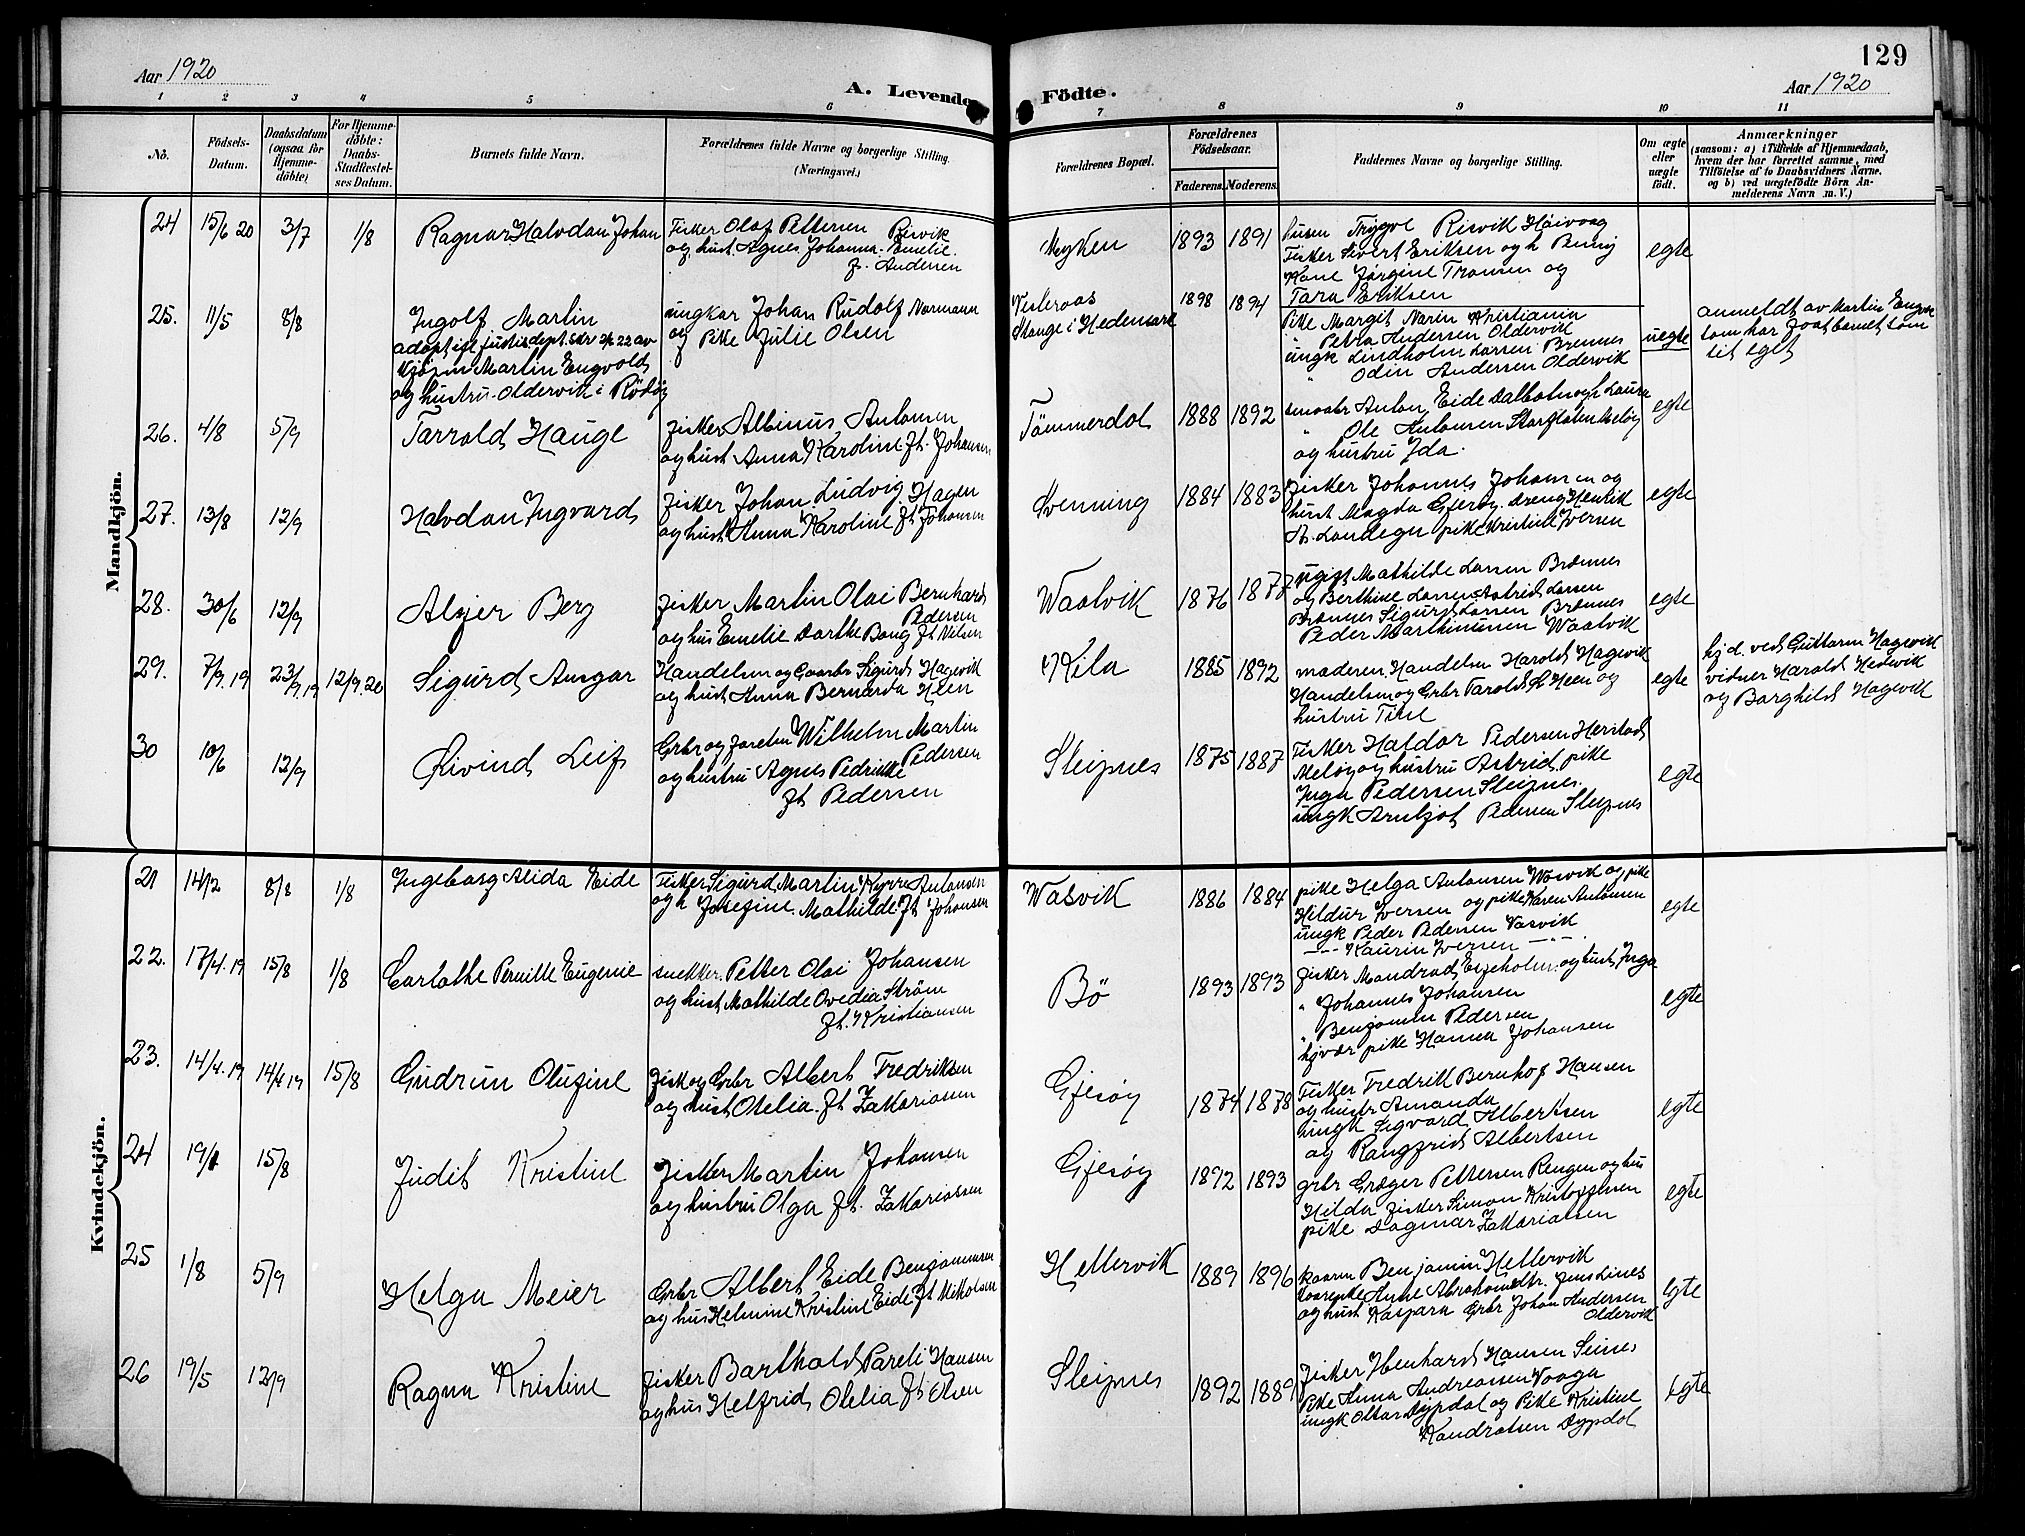 129
Aar 1920
A. Levende Födte.
Aar 1920
1 2 3 4 5 6 7 8 9 10 11
No.
Födsels-
Datum.
Daabsdatum
(ogsaa for
Hjemme-
döbte)
For Hjemme-
döbte:
Daabs-
Stadfestel-
ses Datum.
Barnets fulde Navn.
Forældrenes fulde Navne og borgerlige Stilling.
(Næringsvei.)
Forældrenes Bopæl.
Forældrenes
Födselsaar.
Faderens. Moderens.
Faddernes Navne og borgerlige Stilling.
Om ægte
eller
uægte
födt.
Anmærkninger
(saasom: a) i Tilfælde af Hjemmedaab,
hvem der har forrettet samme, med
Tilföielse af to Daabsvidners Navne,
og b) ved uægtefödte Börn An-
melderens Navn m. V.)
Mandkjön.
24 15/6 20 3/7 1/8 Ragnar Halvdan Johan
Fisker Olaf Pettersen Risvik
og hust. Agnes Johanna Emelie
f. Andersen
Myken 1893 1891
Trygve Risvik Høivaag
Fisker Sivert Eriksen og h Benny
Kone Jørgine Transen og
Tara Eriksen
egte
25. 11/5 8/8 Ingolf Martin
adopt ifl justisdept. skr 2/2 22 av
Martin Engvold
og hustru Oldervik i Rødøy
ungkar Johan Rudolf Normann
og Pike Julie Olsen
Vesteraas
Stange i Hedemark
1898 1894
Pike Margit Narin Kristiania
" Petra Andersen Oldervik
ungk Lindholm Larsen Brennes
" Odin Andersen Oldervik
uegte
anmeldt av Martin Engvold
som har faat barnet som
sit eget
26. 4/8 5/9 Tarrald Hauge
fisker Albinus Antonsen
og hust Anna Karoline ft. Johansen
Tömmerdal 1888 1892
smaabr Anton Eide Dalbotn og h Laura
" Ole Antonsen Storfloten Meløy
og hustru Ida.
egte
27. 13/8 12/9 Halvdan Ingvard
fisker Johan Ludvig Hagen
og hust Anna Karoline ft Johansen
Svenning 1884 1883
fisker Johannes Johansen og
hust Magda Gjerøy. dreng Henrik
A. Landego pike Kristine Iversen
egte
28. 30/6 12/9 Alger Berg
fisker Martin Olai Bernhard
Pedersen
og hus Emelie Dorthe Bang ft Nilsen
Waatvik 1876 1877
ugift Mathilde Larsen Brennes
og Berthine Larsen Astrid Larsen
Brennes Sigurd Larsen Brennes
Peder Marthinusen Waatvik
egte
29. 7/9.19 23/9.19 12/9.20 Sigurd Ansgar
Handelsm og Gaarbr Sigurd Hagevik
og hust Anna Bernarda Heen
Kila 1885 1892
moderen. Handelsm Harold Hagevik
Handelsm og Grbr Tarold A Heen og
hustru
egte
hj d. ved Guttarm Hagevik
vidner Harald Hedevik
og Borghild Hagevik
30 10/6 12/9 Øivind Leif
Grbr og Wilhelm Martin
Pedersen
og hustru Agnes Pedrikke
ft Pedersen
Sleipnes 1875 1887
Fisker Haldor Pedersen Herstad
Meløy og hustru Astrid, pike
Inga Pedersen Sleipnes.
ungk Arnljot Pedersen Sleipnes
egte
Kvindekjön.
21 14/2 8/8 1/8 Ingeborg Alida Eide
Fisker Sigurd Martin Kyrre Antonsen
og h Josefine Mathilde ft Johansen
Wasvik 1886 1884
pike Helga Antonsen Wasvik og pike
Hildur Iversen og pike Karen Antonsen
ungk Peder Pedersen Vasvik
--- Kaurin Iversen ---
egte
22. 17/4.19 15/8 1/8 Carlothe Pernille Eugenie
snekker Petter Olai Johansen
og hust Mathilde Ovedia Strøm
ft. Kristiansen
Bö 1893 1893
fisker Mandrad Espeholm. og hust Inga
" Johannes Johansen
" Benjamin Pedersen
pike Hanna Johansen
egte
23. 14/4.19 14/4 19 15/8 Gudrun Olufine
fisk og Grbr Albert Fredriksen
og hust Otelia ft Zakariassen
Gjesøy 1874 1878
Fisker Fredrik Bernhof Hansen
og hustr Amanda
ungk Sigvard Albertsen
og Rangfrid Albertsen
egte
24 19/1 15/8 Judit Kristine
fisker Martin Johansen
og hustru Olga ft. Zakariassen
Gjesøy 1892 1893
grbr Græger Pettersen Rengen og hus
Hilda fisker Simon Kristoffersen
pike Dagmar Zakariassen
egte
25 1/8 5/9 Helga Meier
Grbr Albert Eide Benjaminsen
og hus Helmine Kristine Eide ft Mikalsen
Hellervik 1889 1896
Benjamin Hellervik
Anne Abrahamsdtr. Jens
og hust Kaspara Grbr Johan Andersen
Oldervik
egte
26 19/5 12/9 Ragna Kristine
fisker Barthold Pareli Hansen
og hus Helfrid Otelia ft Olsen
Sleipnes 1892 1889
fisker Ibenhard Hansen Seines
Pike Anna Andreassen Vaaga
ungk Oltar Dypdal og Pike Kristine
Kondratsen Dypdal
egte